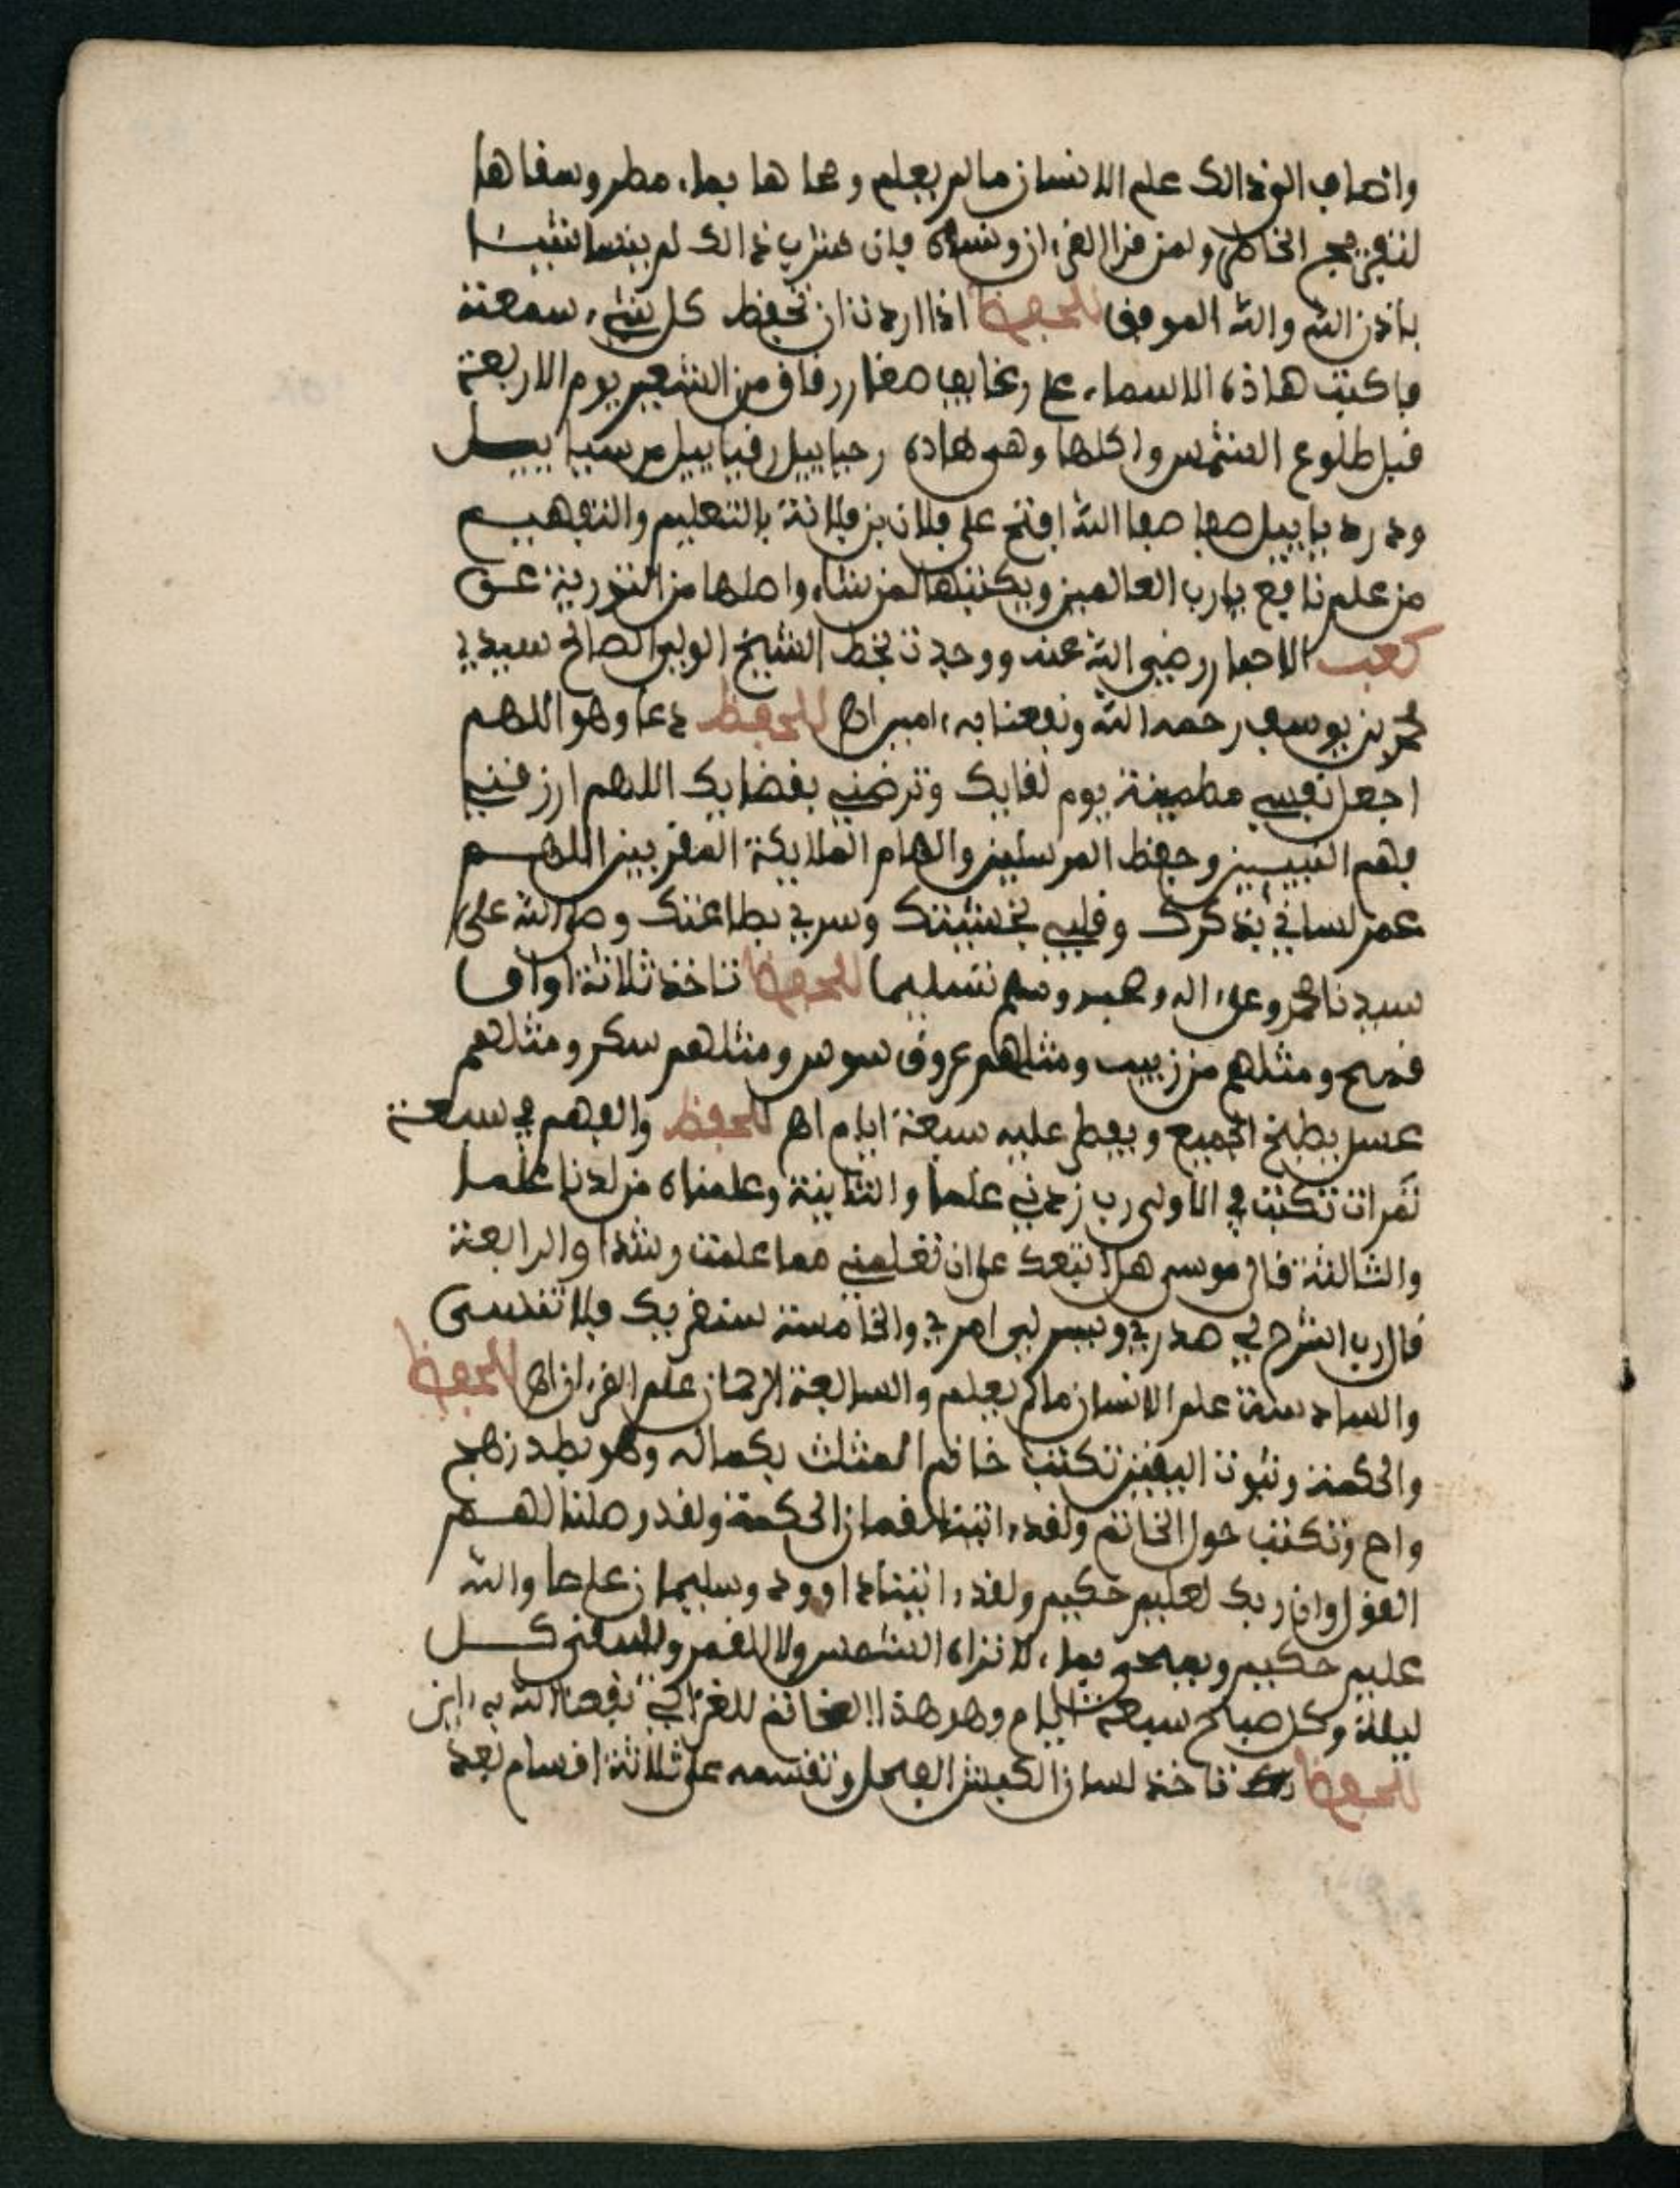 واضاف الى ذالك علم الانسان مالم يعلم ومحاها بماء مطر وسقاها
لثقيل الخاطر ولمن قرا القرءان ونساه فان شرب ذالك لم ينسا شيئا
باذن الله والله الموفق للحفظ اذا اردت ان تحفظ كل شيء سمعته
فاكتب هاذه الاسماء على رغايف صغار رقاق من الشعير يوم الاربعة
قبل طلوع الشمس واكلها وهي هاذه رحيابيل رفيابيل مرسيابيل
ودرديابيل صفا صفا الله افتح على فلان بن فلانة بالتعليم والتفهيم
من علم نافع يارب العالمين ويكتبها لمن شاء واصلها من عن
كعب الاحبار رضي الله عنه ووجدت بخط الشيخ الولي الصالح سيدي
محمد بن يوسف رحمه الله ونفعنا به ءامين اه للحفظ دعا وهو اللهم
اجعل نفسي مطمينة يوم لقايك وترضني بقضايك اللهم ارزقني
فهم النبيين وحفظ المرسلين والهام الملايكة المقربين اللهم
عمر لساني بذكرك وقلبي بخشيتك وسري بطاعتك وصلى الله على
سيدنا محمد وعلى اله وصحبه وسلم تسليما للحفظ تاخذ ثلاثة اواق
قمح ومثلهم من زبيب ومثلهم عروق سوس ومثلهم سكر ومثلهم
عسل يطبخ الجميع ويفطر عليه سبعة ايام اه للحفظ والفهم في سبعة
تمرات تكتب في الاولى رب زدني علما والثانية وعلمناه من لدنا علما
والثالثة قال موسى هل اتبعك على ان تعلمني مما علمت رشدا والرابعة
قال رب اشرح لي صدري ويسر لي امري والخامسة سنقريك فلا تنسى
والسادسة علم الانسان مالم يعلم والسابعة الرحمان علم القرءان اه للحفظ
والحكمة وثبوت اليقين تكتب خاتم المثلث بكماله وهو بطد زهج
واح وتكتب حول الخاتم ولقد ءاتينا لقمان الحكمة ولقد وصلنا لهم
القول وان ربك لعليم حكيم ولقد ءاتينا داوود وسليمان علما والله
عليم حكيم ويمحى بماء لا تراه الشمس ولا القمر ويسقى كل
ليلة وكل صباح سبعة ايام وهو هذا الخاتم للغزالي نفعنا الله به ءامين
للحفظ تاخذ لسان الكبش الفحل وتقسمه على ثلاثة اقسام بعد